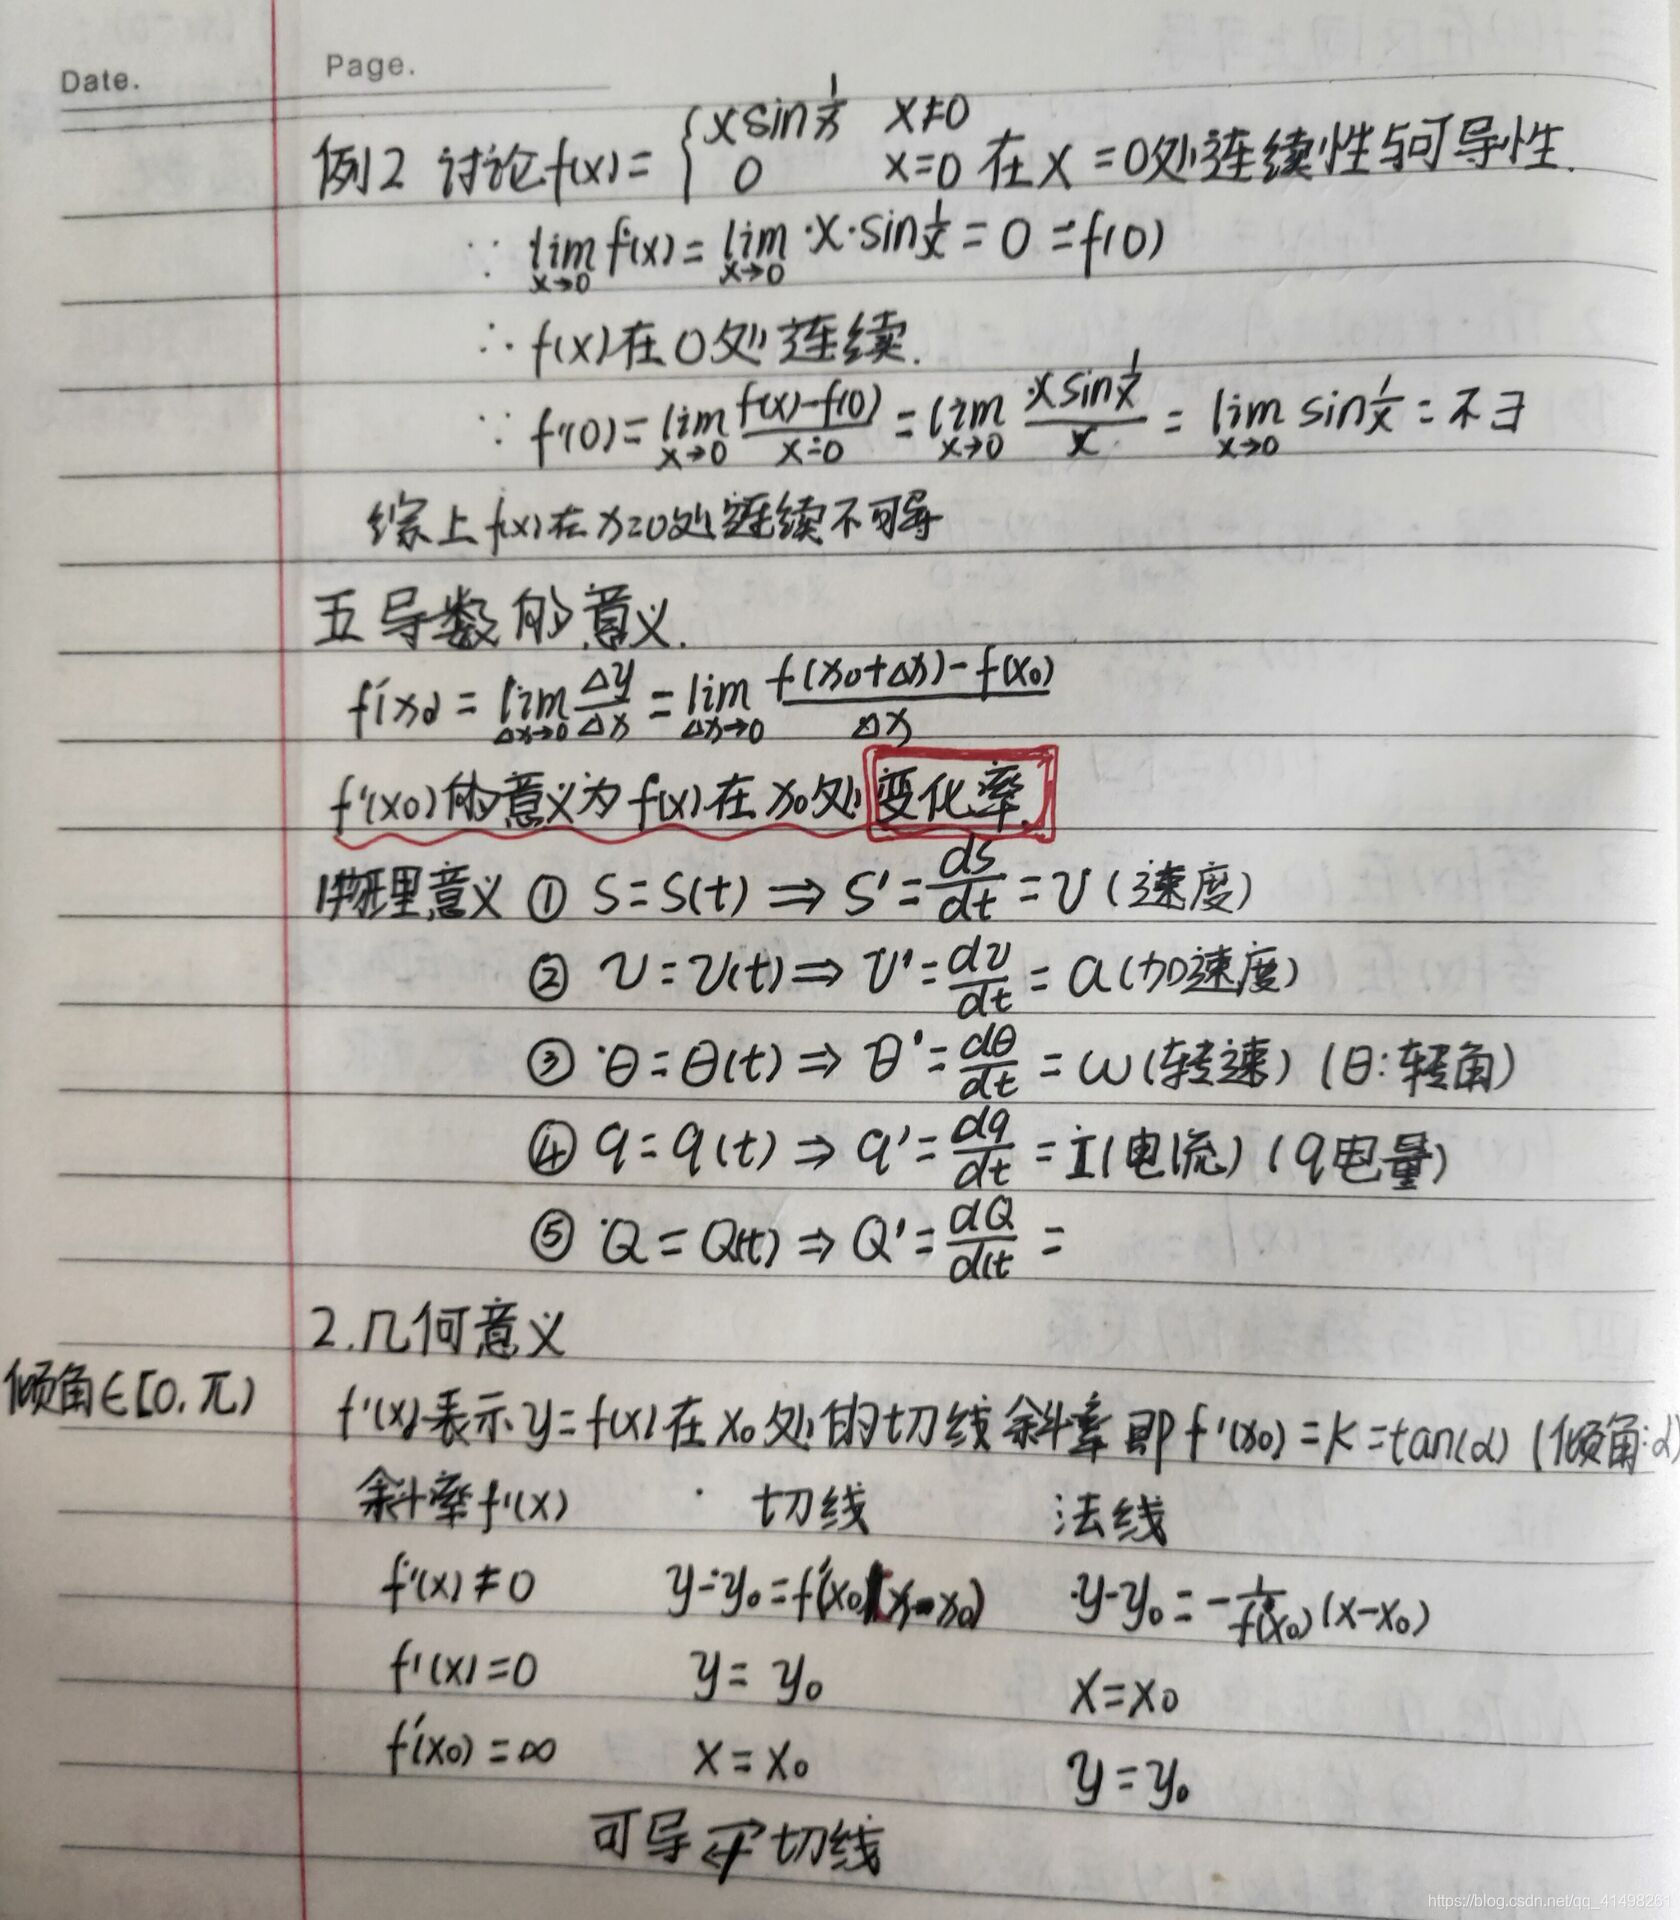 Date.
Page.
例2 讨论f(x)={xsin1/x x≠0
0 x=0 在x=0处连续性与可导性.
∵ lim x→0 f(x)=lim x→0 ·x·sin1/x=0=f(0)
∴ f(x)在0处连续.
∵ f'(0)=lim x→0 (f(x)-f(0))/(x-0)=lim x→0 (xsin1/x)/x=lim x→0 sin1/x=不∃
综上f(x)在x=0处连续不可导
五导数的意义.
f'(x0)=lim Δx→0 Δy/Δx=lim Δx→0 (f(x0+Δx)-f(x0))/Δx
f'(x0)的意义为f(x)在x0处变化率.
1物理意义 ① S=S(t)⇒S'=ds/dt=v(速度)
② v=v(t)⇒v'=dv/dt=a(加速度)
③ θ=θ(t)⇒θ'=dθ/dt=ω(转速)(θ:转角)
④ q=q(t)⇒q'=dq/dt=I(电流)(q电量)
⑤ Q=Q(t)⇒Q'=dQ/dt=
2.几何意义
倾角∈[0,π)
f'(x)表示y=f(x)在x0处的切线斜率即f'(x0)=k=tan(α)(倾角:α)
斜率f'(x) 切线 法线
f'(x)≠0 y-y0=f'(x0)(x-x0) y-y0=-1/f'(x0)(x-x0)
f'(x)=0 y=y0 x=x0
f'(x0)=∞ x=x0 y=y0
可导 切线
https://blog.csdn.net/qq_41498261